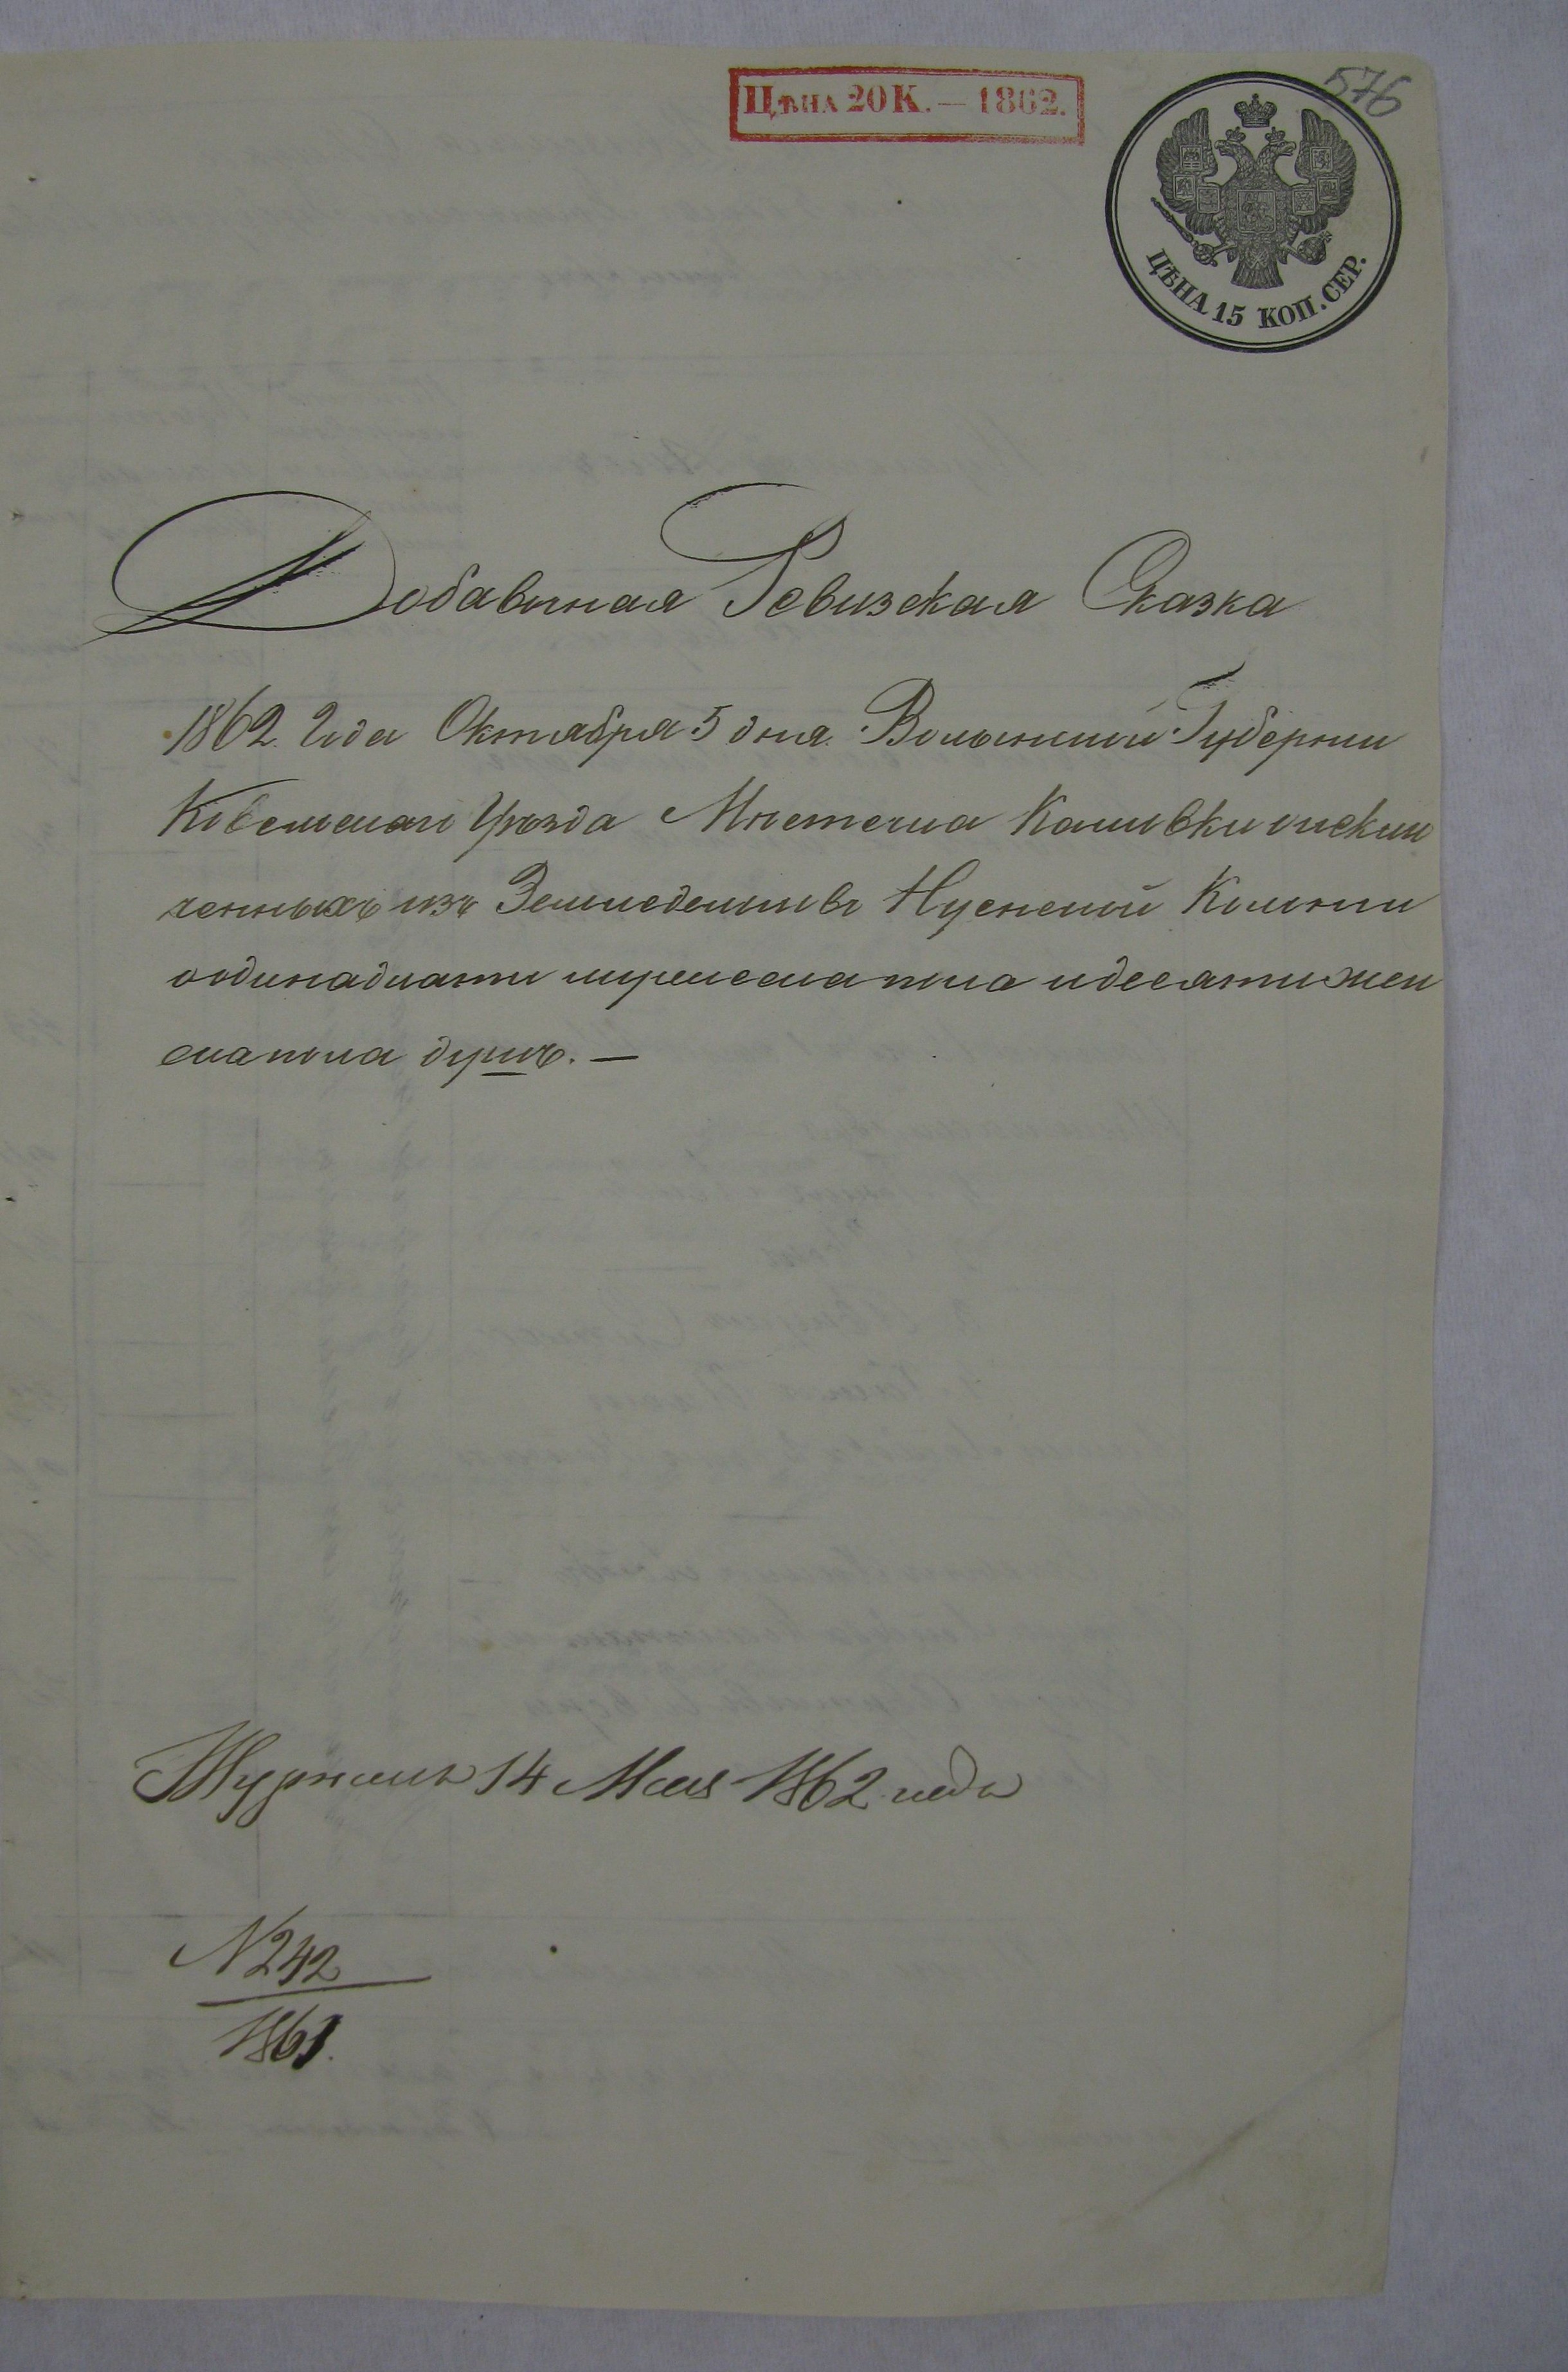 576
ЦѢНА 20 К. — 1862.
ЦѢНА 15 КОП. СЕР.
Добавочная Ревизская Сказка
1862 Года Октября 5 дня Волынской Губернии
Ковельскаго Уѣзда Мѣстечка исклю
ченныхъ изъ Земледельцовъ Колонии
о одинадцати мужескаго пола и десяти жен
скаго пола душъ. —
14 Мая 1862 года
N 242
1863.